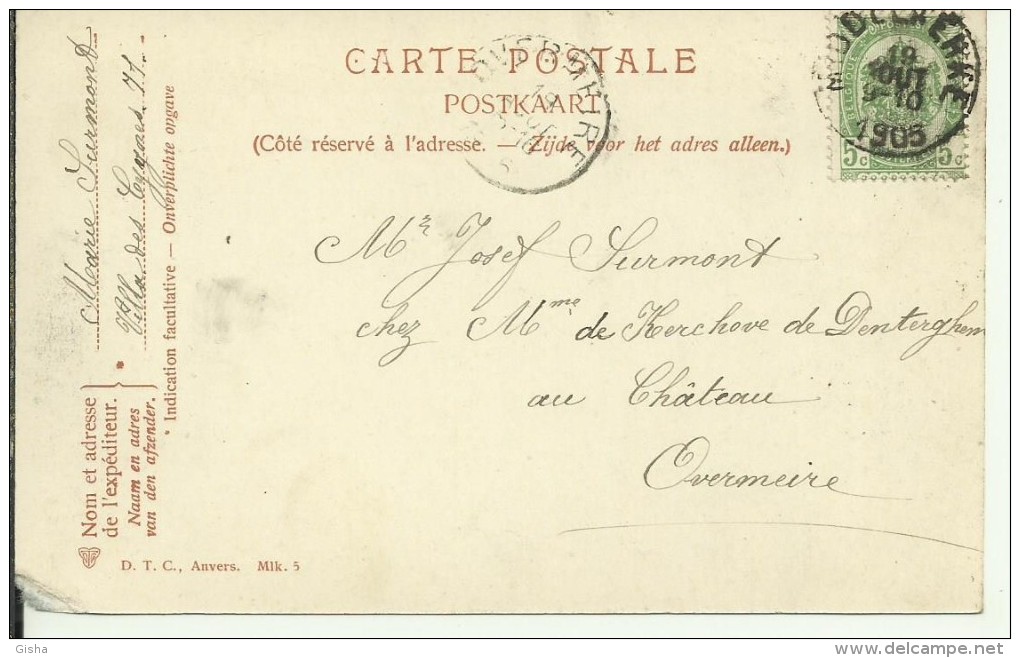 CARTE POSTALE
POSTKAART
(Côté réservé à l'adresse. — Zijde voor het adres alleen.)
19
AOUT
1905
5c 5c
Mr Josef Surmont
chez Mme de Kerchove de Denterghem
au Château
Overmeire
Marie Surmont
Villa des Cygnes
Nom et adresse
de l'expéditeur.
Naam en adres
van den afzender.
* Indication facultative — Onverplichte opgave
D. T. C., Anvers. Mlk. 5
Gisha
www.delcampe.net